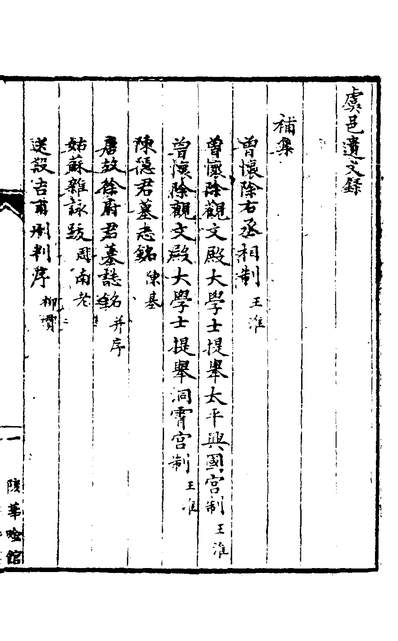 虞邑遺文錄
補集
曾懷除右丞相制 王淮
曾懷除觀文殿大學士提舉太平興國宮制 王淮
曾懷除觀文殿大學士提舉洞霄宮制 王淮
陳隱君墓志銘 陳基
唐故徐府君墓誌銘 并序
姑蘇雜詠跋 周南老
送殷吉甫州判序 柳貫
一
陵華唫館